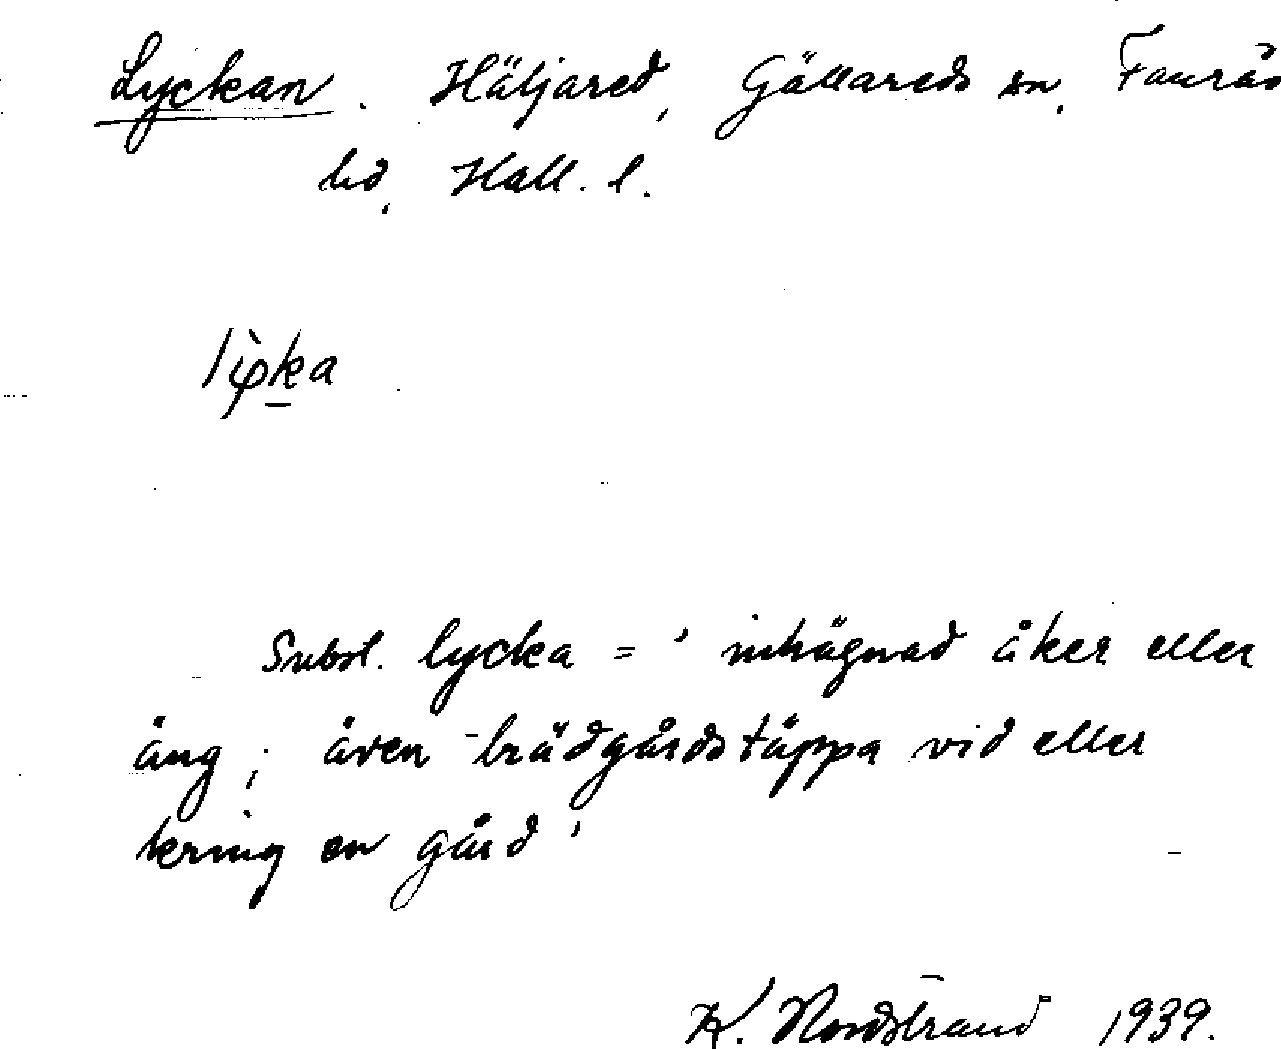 Lyckan. Häljared, Gällareds sn, Faurås
hd, Hall. l.
lỳka
Subst. lycka = 'inhägnad åker eller
äng; även trädgårdstäppa vid eller
kring en gård'
K. Nordstrand 1939.